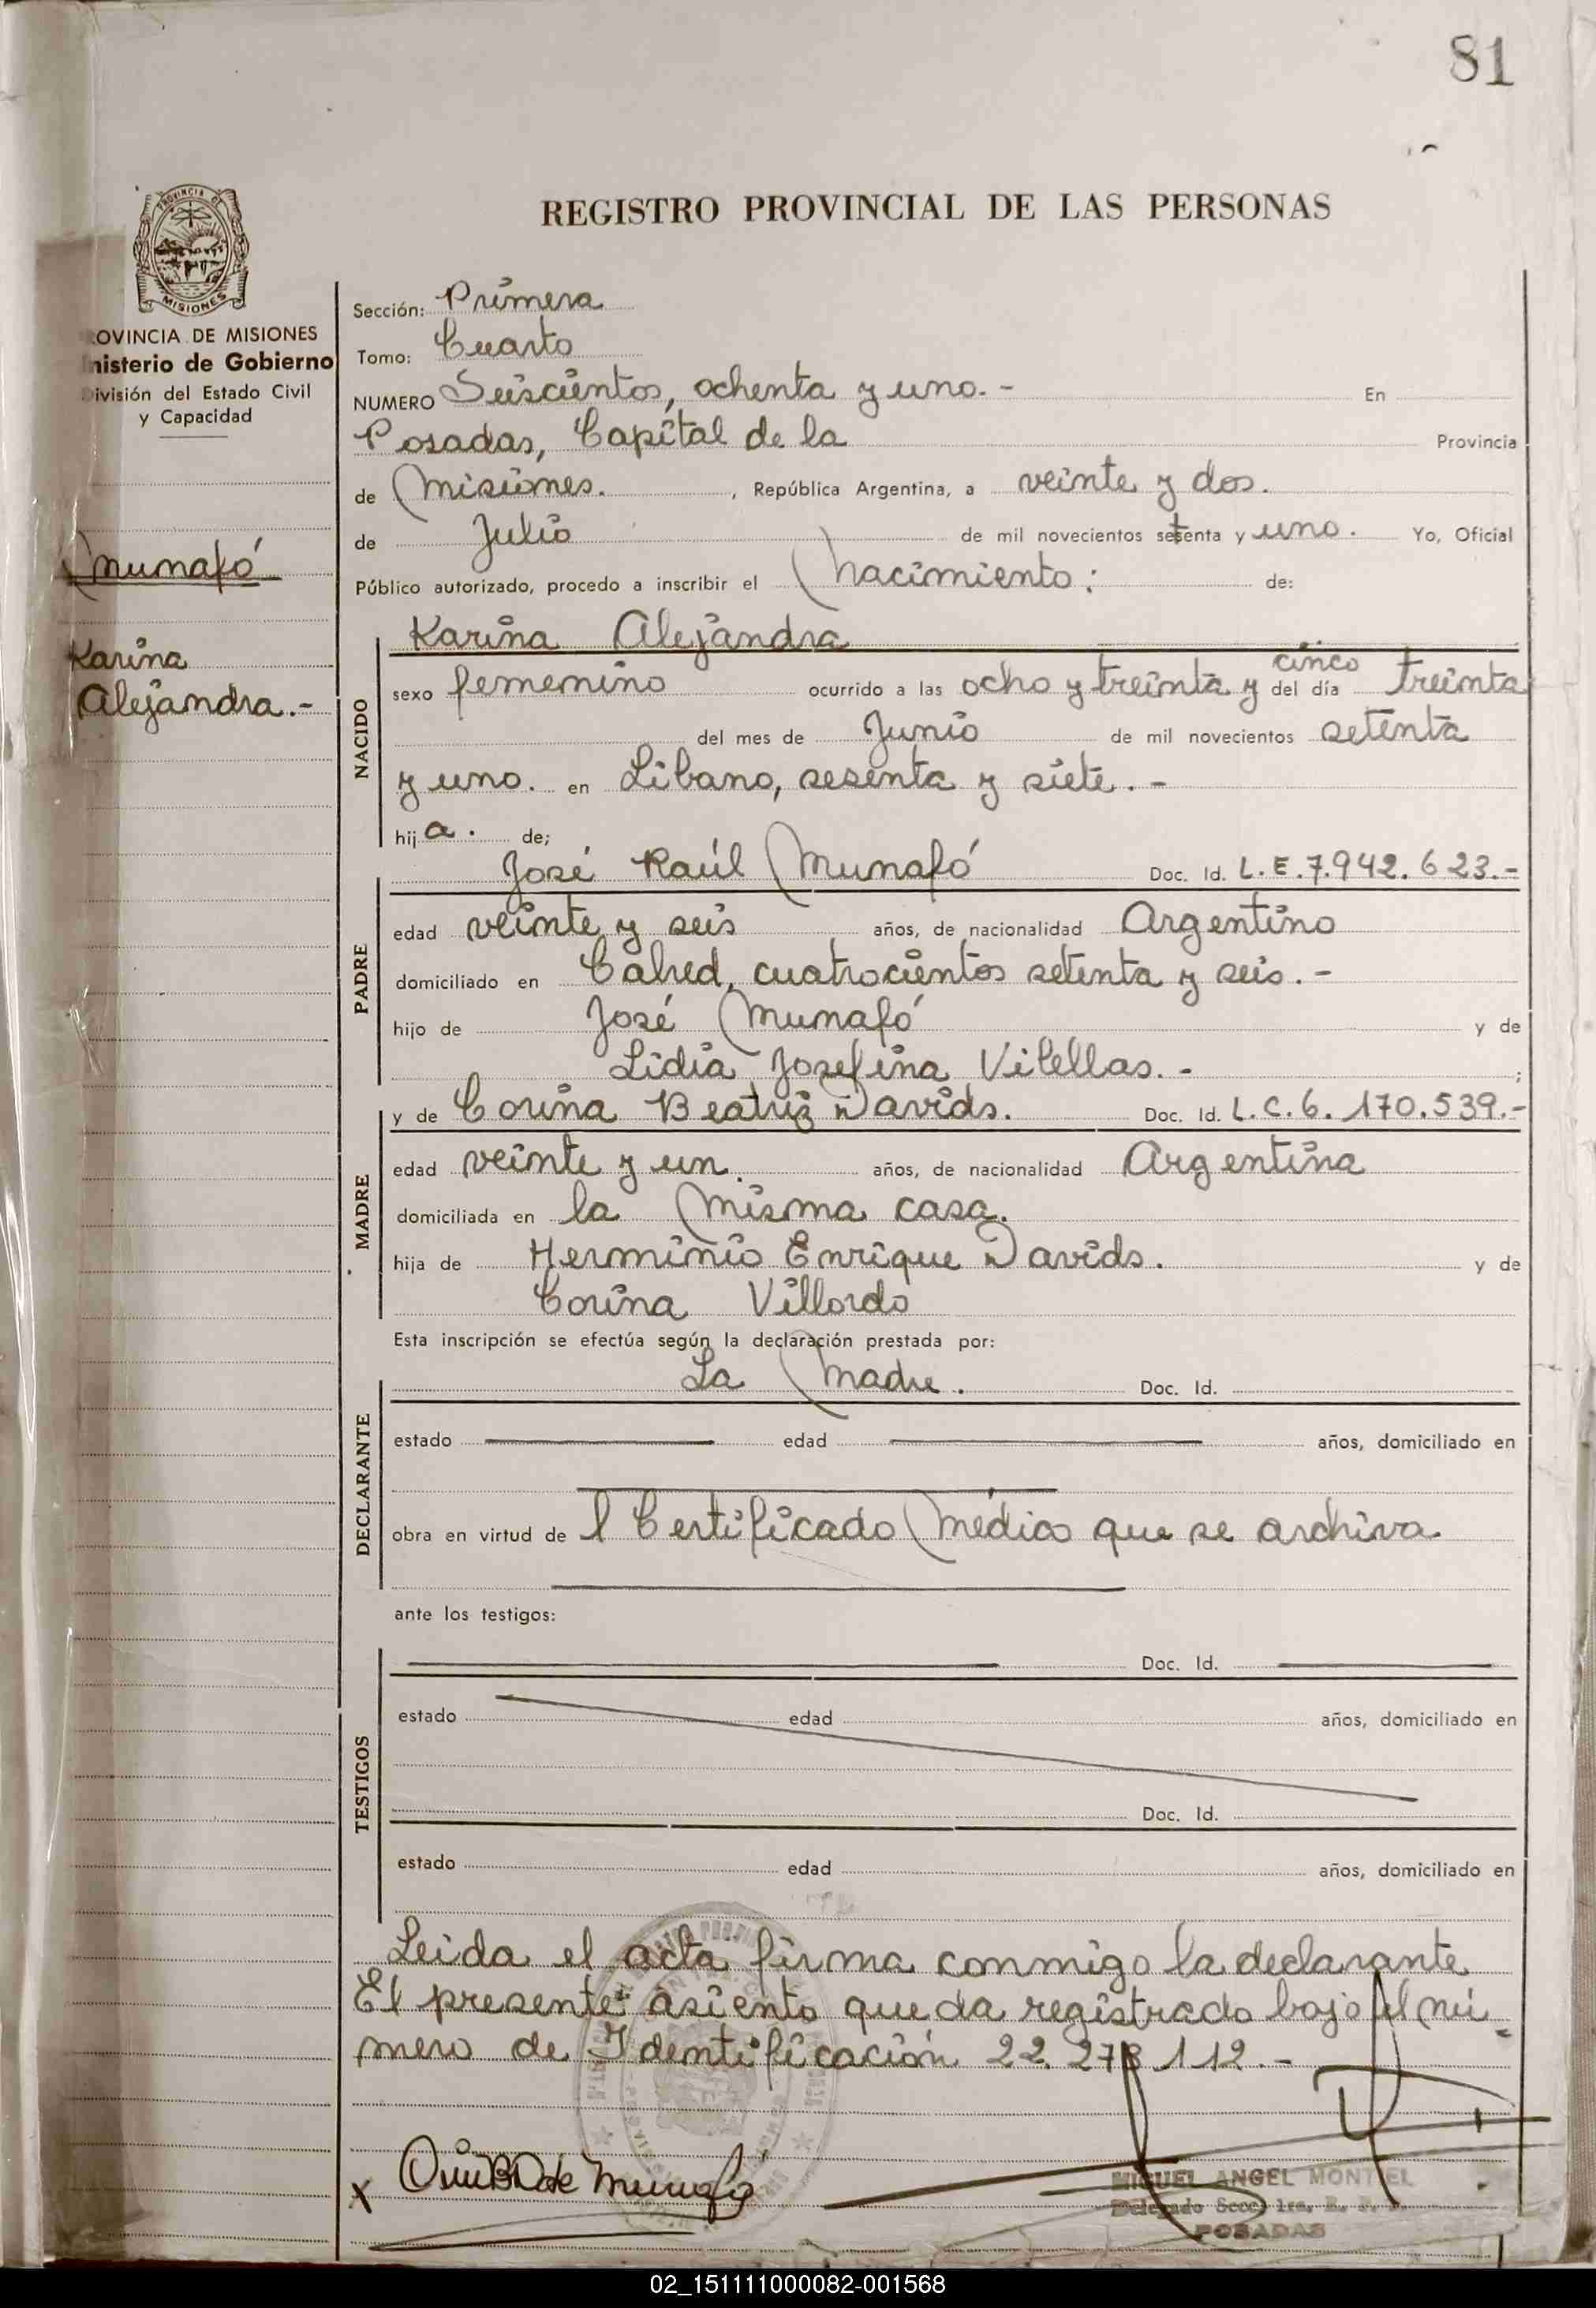 81
PROVINCIA DE
MISIONES
REGISTRO PROVINCIAL DE LAS PERSONAS
OVINCIA DE MISIONES
nisterio de Gobierno
ivisión del Estado Civil
y Capacidad
Munafó
Karina
Alejandra.-
Sección: Primera
Tomo: Cuarto
NUMERO Seiscientos, ochenta y uno.- En
Posadas, Capital de la Provincia
de Misiones. , República Argentina, a veinte y dos.
de Julio de mil novecientos setenta y uno. Yo, Oficial
Público autorizado, procedo a inscribir el Nacimiento: de:
NACIDO
Karina Alejandra
cinco
sexo femenino ocurrido a las ocho y treinta y del día treinta
del mes de Junio de mil novecientos setenta
y uno. en Libano, sesenta y siete.-
hij a. de;
PADRE
José Raúl Munafó Doc. Id. L.E.7.942.623.-
edad veinte y seis años, de nacionalidad Argentino
domiciliado en Cabred, cuatrocientos setenta y seis.-
hijo de José Munafó y de
Lidia Josefina Vilellas.- ;
y de Corina Beatriz Davids. Doc. Id. L.C.6.170.539.-
MADRE
edad veinte y un. años, de nacionalidad Argentina
domiciliada en la misma casa.
hija de Herminio Enrique Davids. y de
Corina Villordo
Esta inscripción se efectúa según la declaración prestada por:
DECLARANTE
La Madre. Doc. Id.
estado edad años, domiciliado en
obra en virtud de l Certificado Médico que se archiva
ante los testigos:
TESTIGOS
Doc. Id.
estado edad años, domiciliado en
Doc. Id.
estado edad años, domiciliado en
Leida el acta firma conmigo la declarante
El presente asiento queda registrado bajo el nú-
mero de Identificación 22.278112.-
x de Munafó
MIGUEL ANGEL MONTIEL
Delegado Secc. 1ra. R. P. P.
POSADAS
02_151111000082-001568